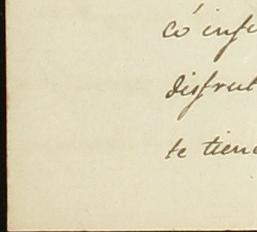 có infe
disfrut
te tiene